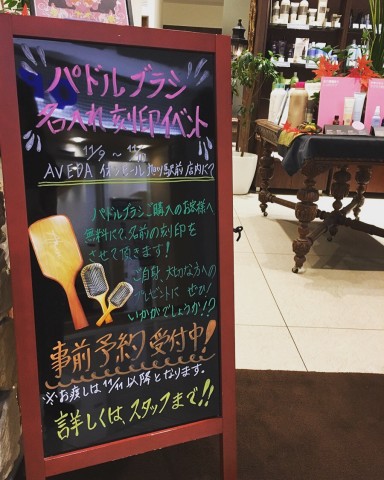 パドルブラシ
名入れ刻印イベント
11/9 ~ 11/
AVEDA 店内にて
パドルブラシご購入のお客様へ
無料にて、名前の刻印を
させて頂きます!
ご自身、大切な方への
プレゼントに ぜひ!
いかがでしょうか!?
事前予約受付中!
※お渡しは 11/11 以降となります。
詳しくは、スタッフまで!!